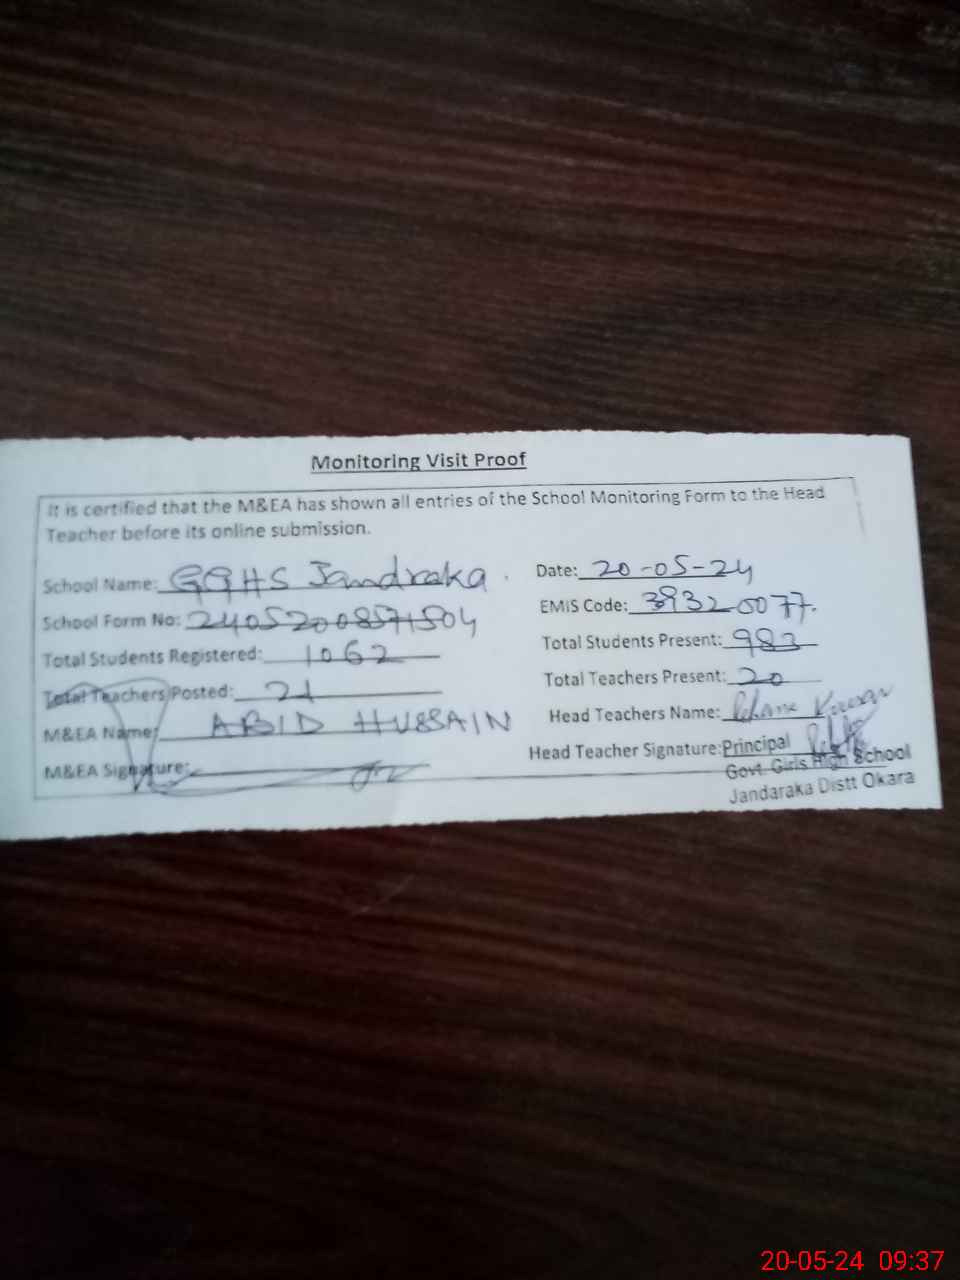 Monitoring Visit Proof
It is certified that the M&EA has shown all entries of the School Monitoring Form to the Head
Teacher before its online submission.
School Name: GGHS Jandraka
Date: 20-05-24
School Form No: 24052008571504
EMIS Code: 39320077.
Total Students Registered: 1062
Total Students Present: 983
Total Teachers Posted: 21
Total Teachers Present: 20
M&EA Name: ABID HUSSAIN
Head Teachers Name:
M&EA Signature:
Head Teacher Signature: Principal
Govt. Girls High School
Jandaraka Distt Okara
20-05-24 09:37